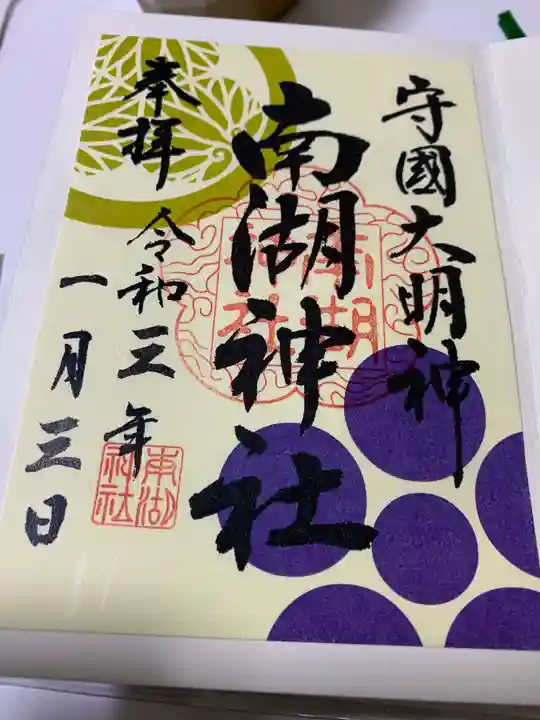 守國大明神
南湖神社
奉拝
令和三年
一月三日
南湖神社
南湖神社